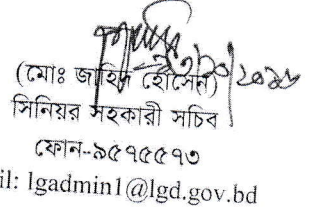 (মোঃ জাহিদ হোসেন)
সিনিয়র সহকারী সচিব
ফোন-৯৫৭৫৫৭৩
il: lgadmin1@lgd.gov.bd